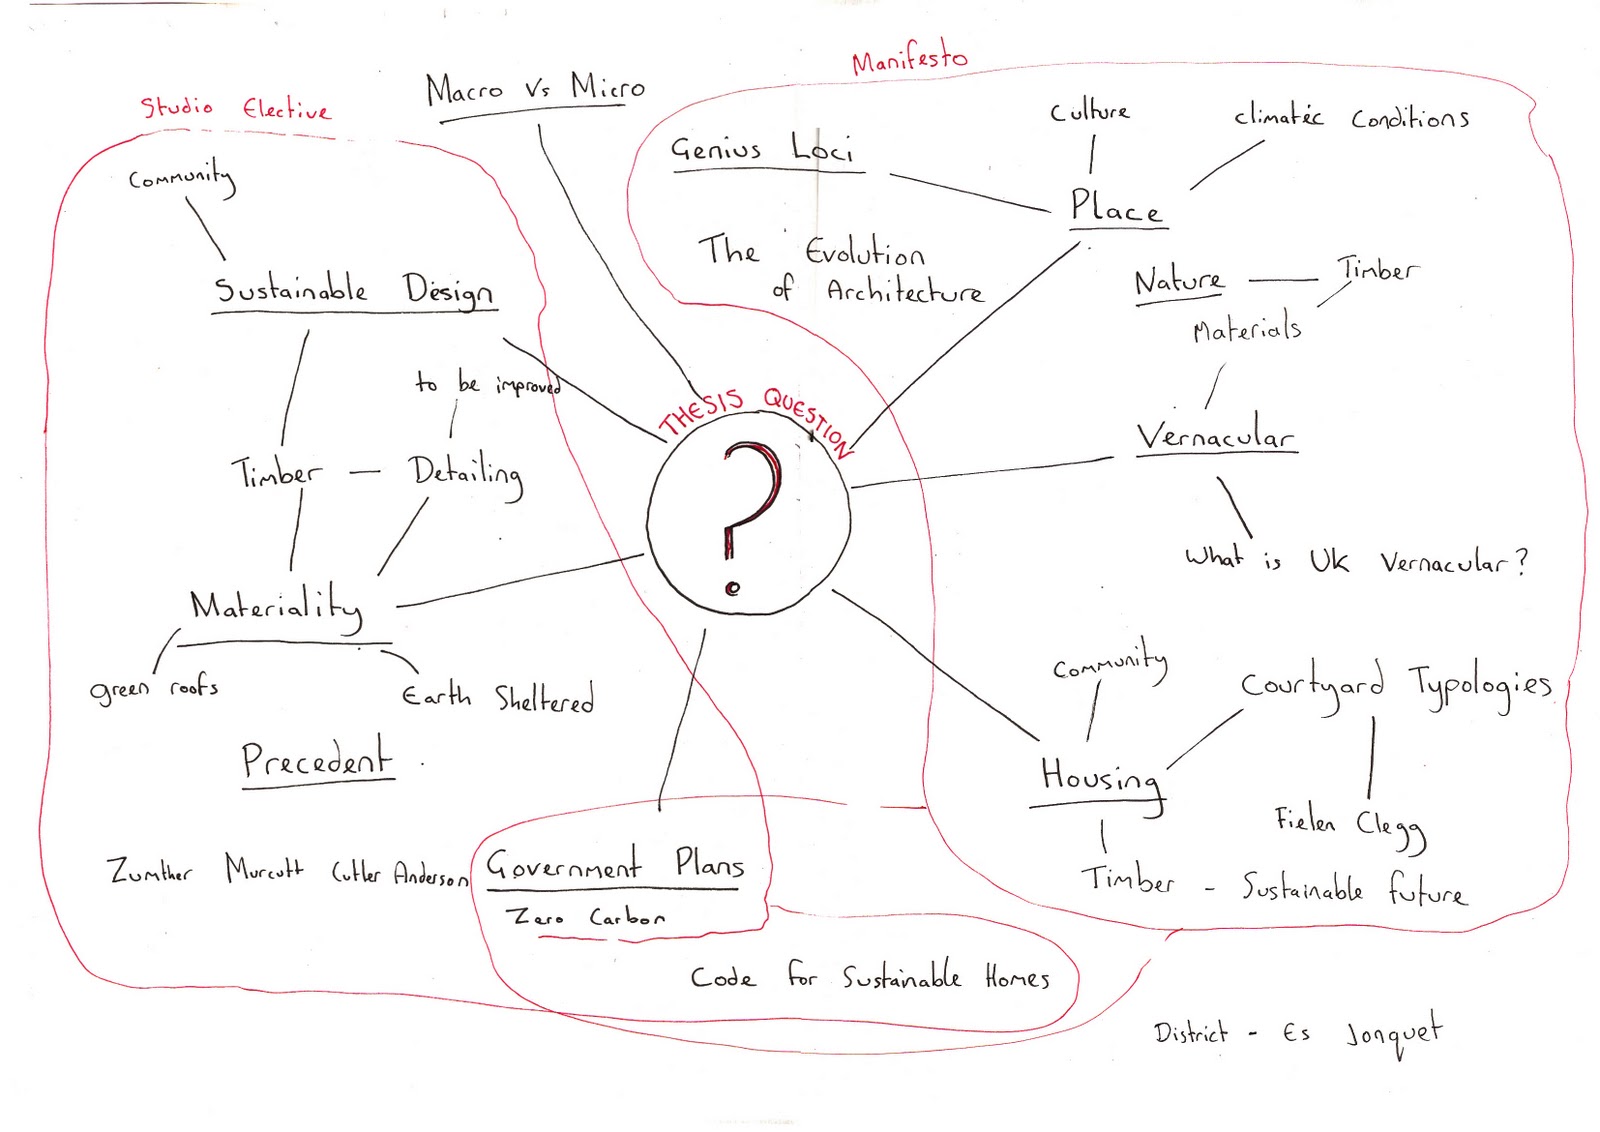 Manifesto
Macro Vs Micro
Studio Elective
Culture
climatic Conditions
Genius Loci
Community
Place
The Evolution
of Architecture
Nature
Timber
Sustainable Design
Materials
to be improved
THESIS QUESTION
?
Vernacular
Timber — Detailing
What is UK Vernacular?
Materiality
Community
Courtyard Typologies
green roofs
Earth Sheltered
Precedent
Housing
Fielen Clegg
Zumther Murcutt Cutler Anderson
Government Plans
Timber - Sustainable future
Zero Carbon
Code for Sustainable Homes
District - Es Jonquet